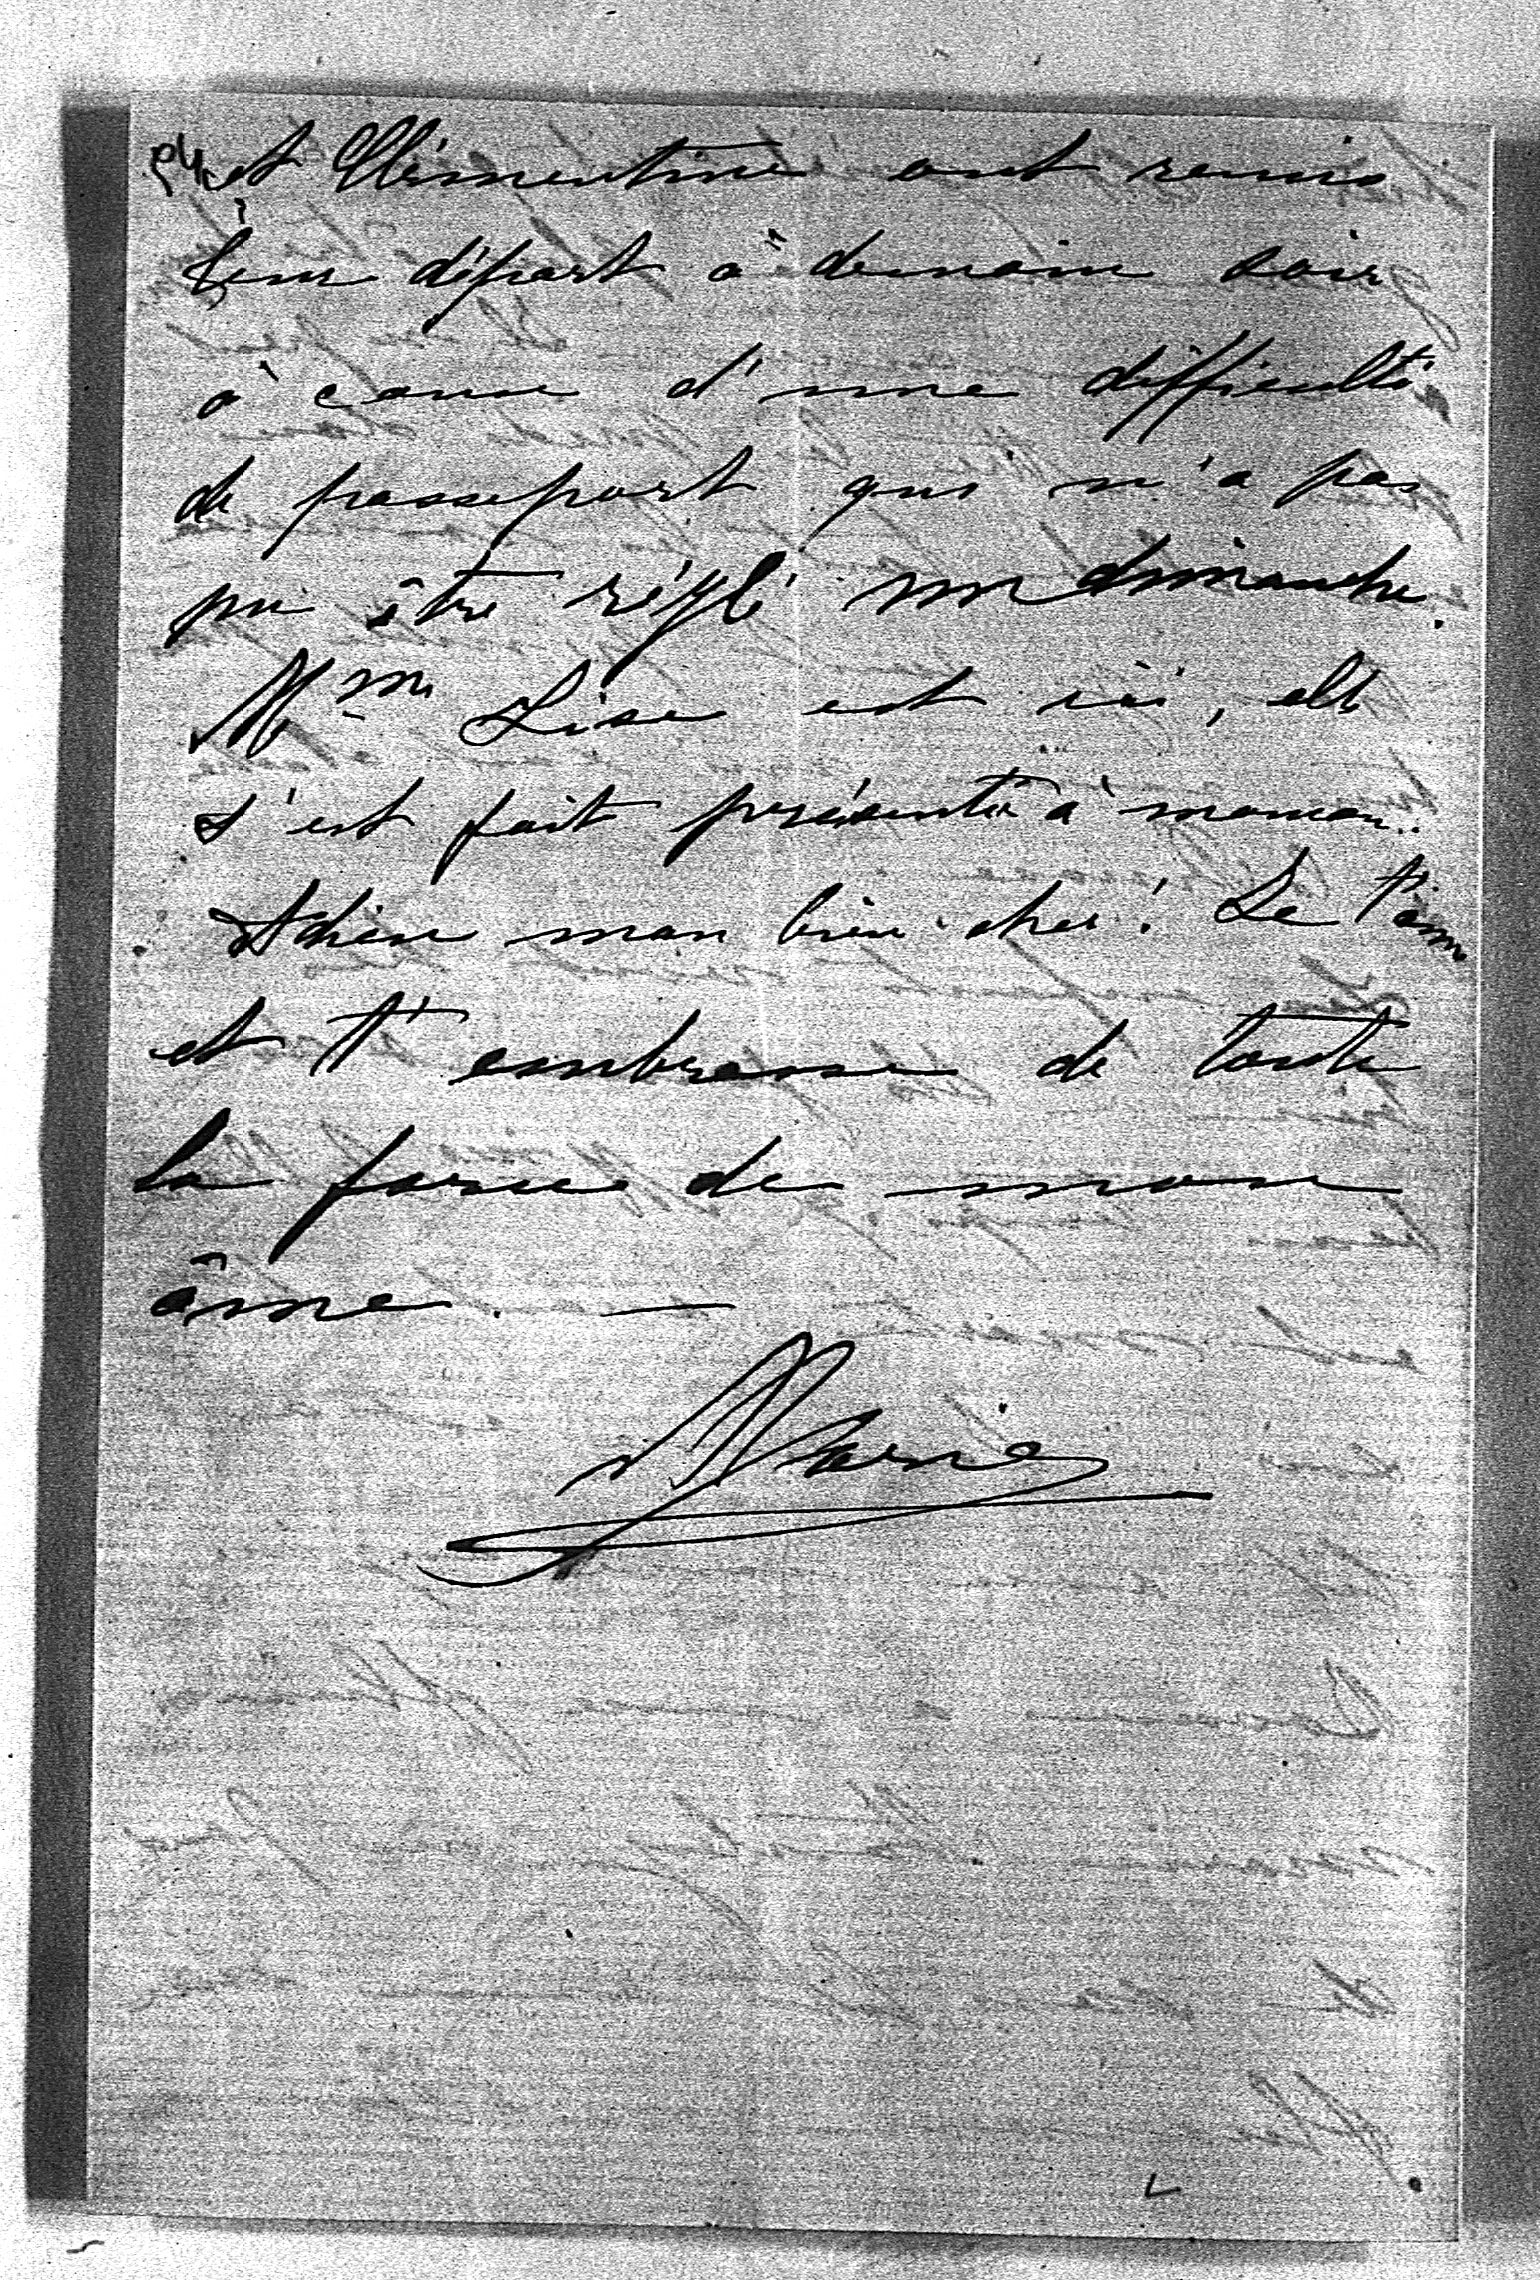 et Clémentine ont remis
leur départ à demain soir
à cause d'une difficulté
de passeport qui n'a pas
pu être réglé un dimanche.
Mme Lise est ici, elle
s'est fait présenter à maman.
Adieu mon bien cher! Je t'aime
et t'embrasse de toute
la force de mon
âme. —
Marie